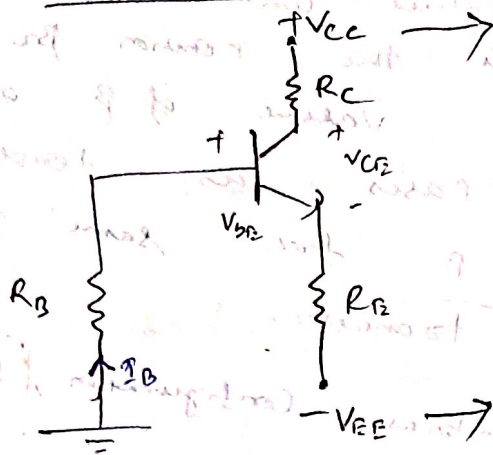 +VCC
RC
+
+
VCE
-
VBE
RB
RE
IB
-VEE